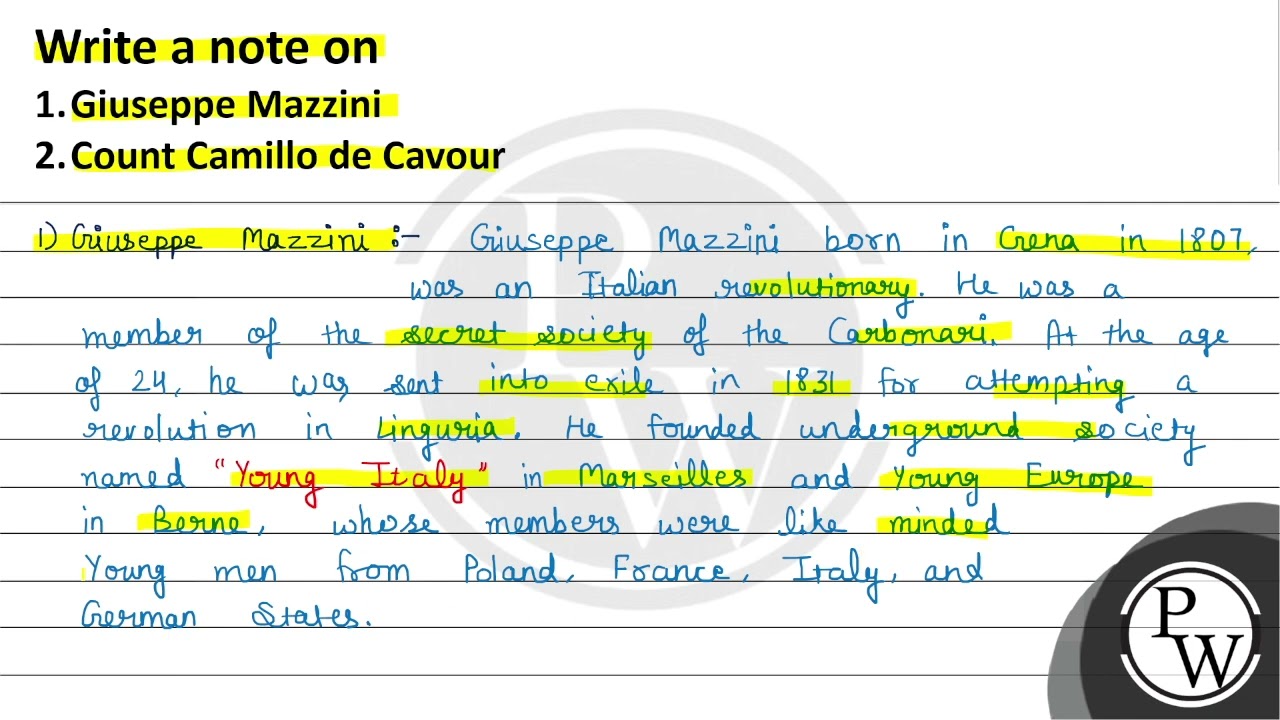 Write a note on
1. Giuseppe Mazzini
2. Count Camillo de Cavour
1) Giuseppe Mazzini :- Giuseppe Mazzini born in Gena in 1807,
was an Italian revolutionary. He was a
member of the secret society of the Carbonari. At the age
of 24, he was sent into exile in 1831 for attempting a
revolution in Linguria. He founded underground society
named "Young Italy" in Marseilles and Young Europe
in Berne, whose members were like minded
Young men from Poland, France, Italy, and
German States.
PW
PW